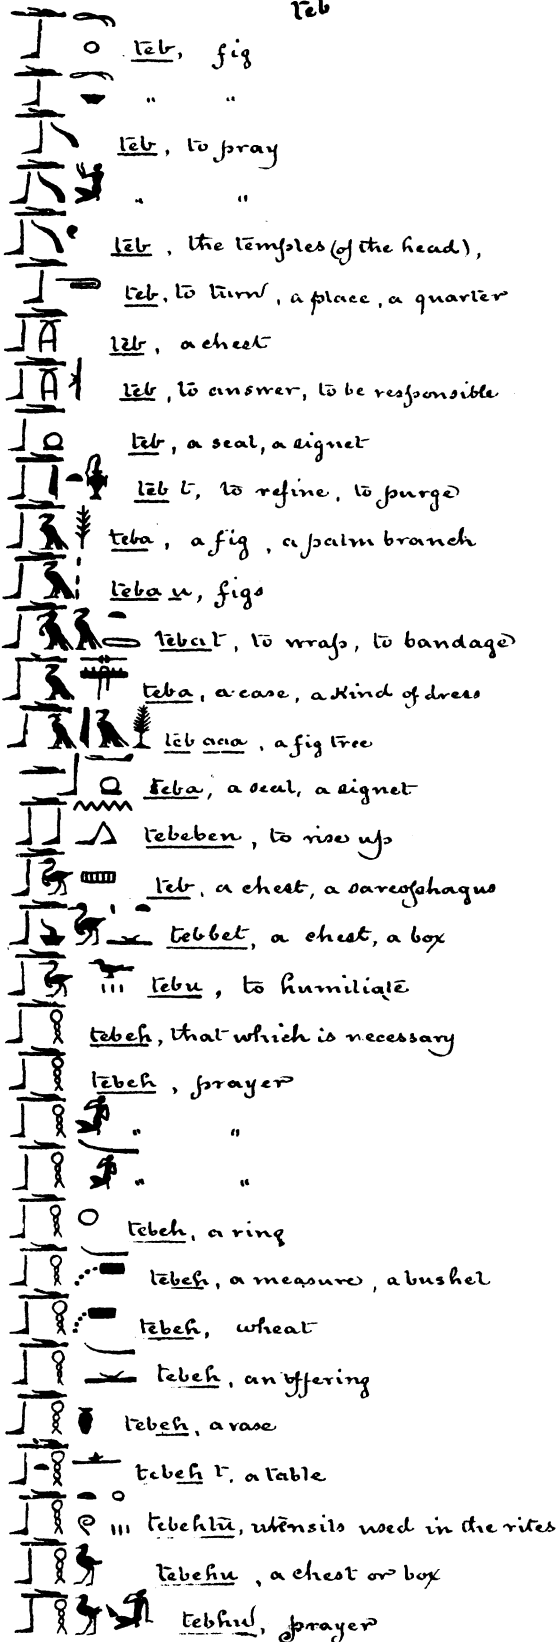 teb
teb, fig
" "
teb, to pray
" "
teb, the temples (of the head),
teb, to turn, a place, a quarter
teb, a chest
teb, to answer, to be responsible
teb, a seal, a signet
teb t, to refine, to purge
teba, a fig, a palm branch
teba u, figs
tebat, to wrap, to bandage
teba, a case, a kind of dress
teb aaa, a fig tree
teba, a seal, a signet
tebeben, to rise up
teb, a chest, a sarcophagus
tebbet, a chest, a box
tebu, to humiliate
tebeh, that which is necessary
tebeh, prayer
" "
" "
tebeh, a ring
tebeh, a measure, a bushel
tebeh, wheat
tebeh, an offering
tebeh, a vase
tebeh t, a table
tebehtu, utensils used in the rites
tebehu, a chest or box
tebhu, prayer